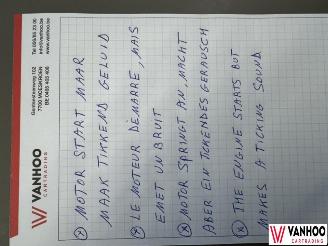 VANHOO
CARTRADING
Gentsesteenweg 152
7700 MOESKROEN
BE 0465 405 406
Tel 056/85 23 00
info@vanhoo.be
www.vanhoo.be
* MOTOR START MAAR
MAAK TIKKEND GELUID
* LE MOTEUR DÉMARRE, MAIS
EMET UN BRUIT
* MOTOR SPRINGT AN, MACHT
ABER EIN TICKENDES GERAUSCH
* THE ENGINE STARTS BUT
MAKES A TICKING SOUND
VANHOO
CARTRADING